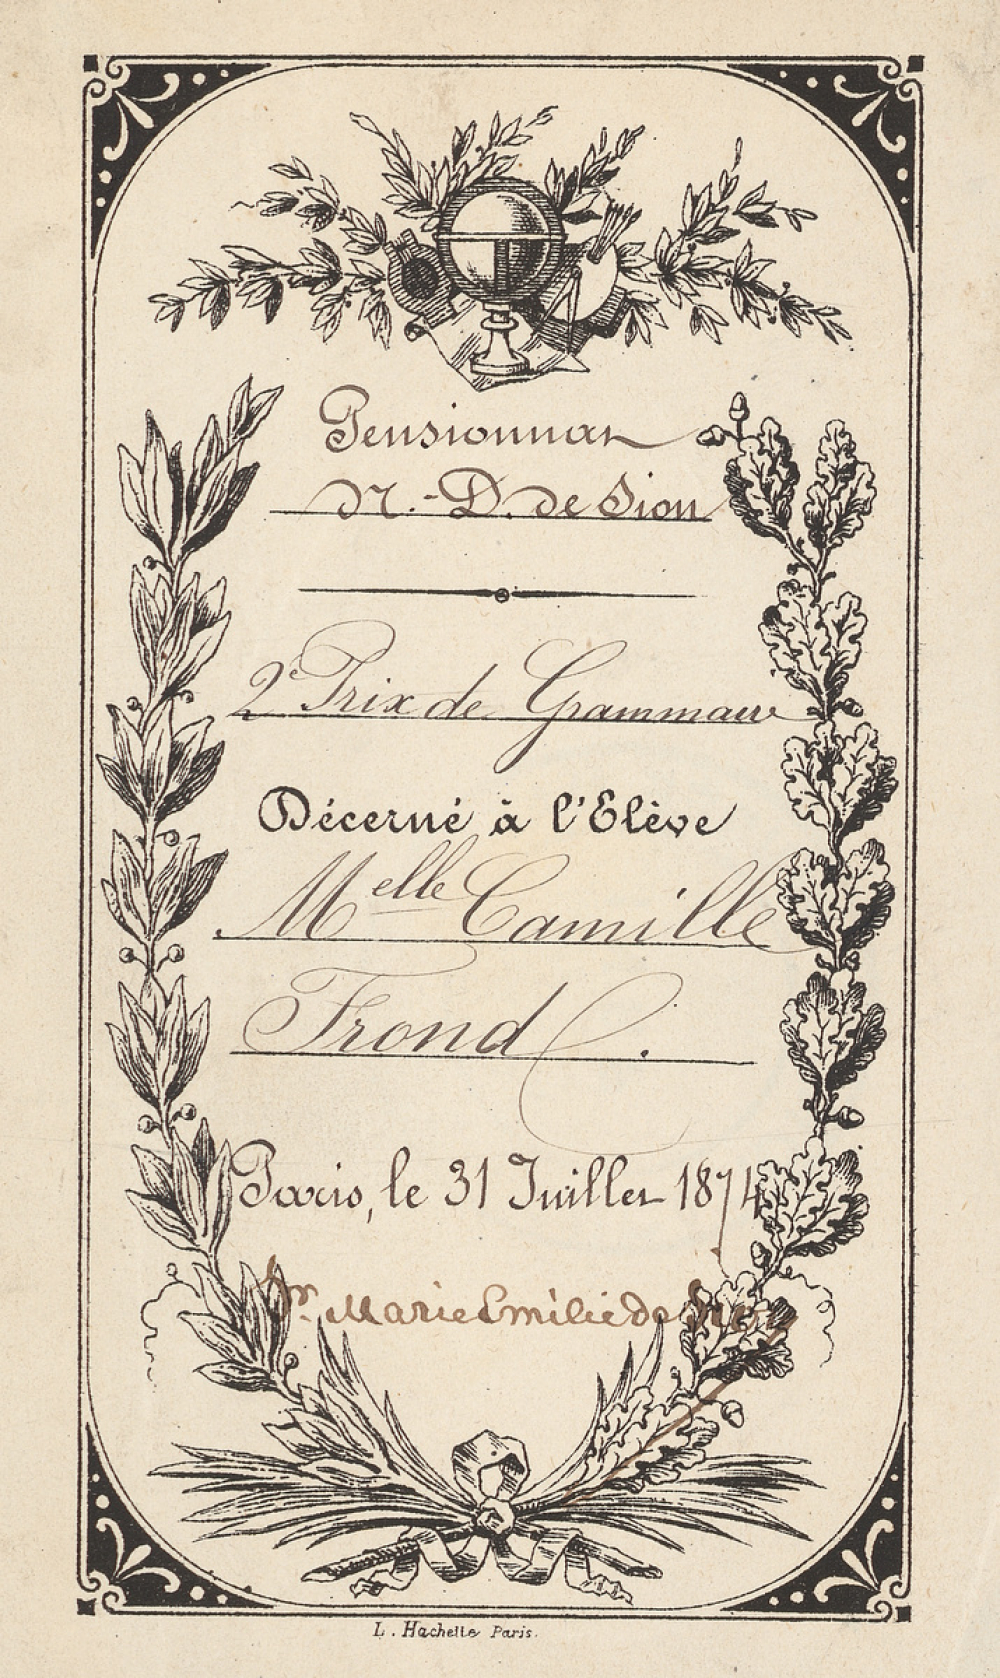 Pensionnat
N.-D. de Sion
2e Prix de Grammaire
Décerné à l'Elève
Melle Camille
Frond.
Paris, le 31 Juillet 1874
Sr. Marie Emilie de Sion
L. Hachette Paris.